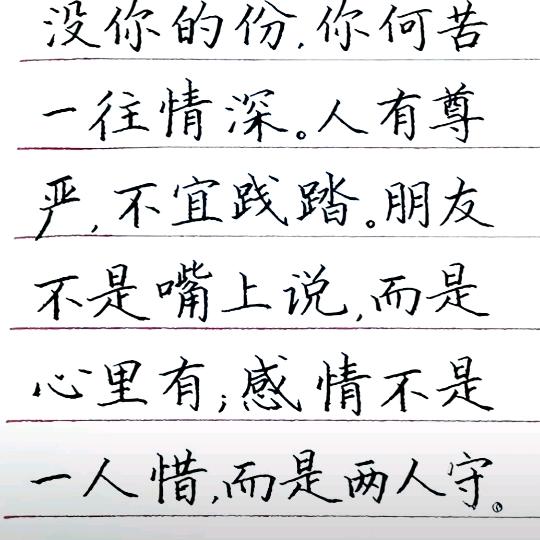 没你的份,你何苦
一往情深。人有尊
严,不宜践踏。朋友
不是嘴上说,而是
心里有;感情不是
一人惜,而是两人守。